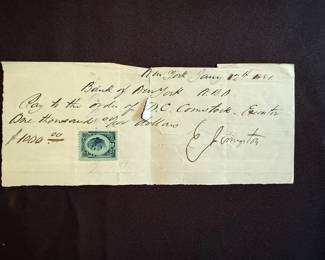 New York Jany 12th
Bank of New York N.B.A
Pay to the order of D.C. Comstock Executor
One thousand 00/100 Dollars
$1000 00
E Livingston